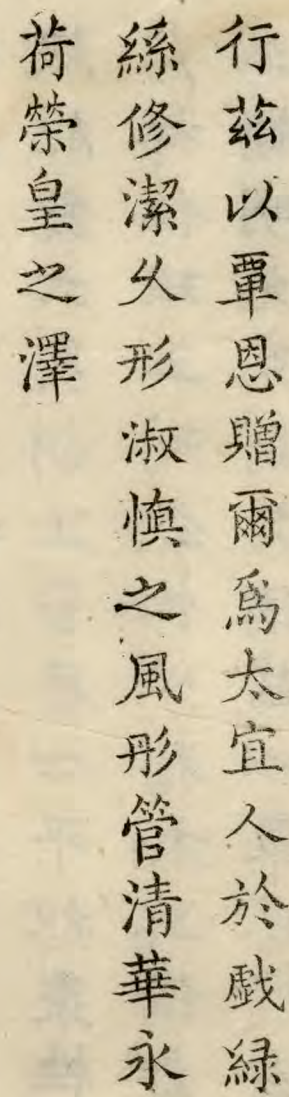 行茲以覃恩贈爾爲太宜人於戯緑
縣修潔乆形淑慎之風彤管清華永
荷榮皇之澤